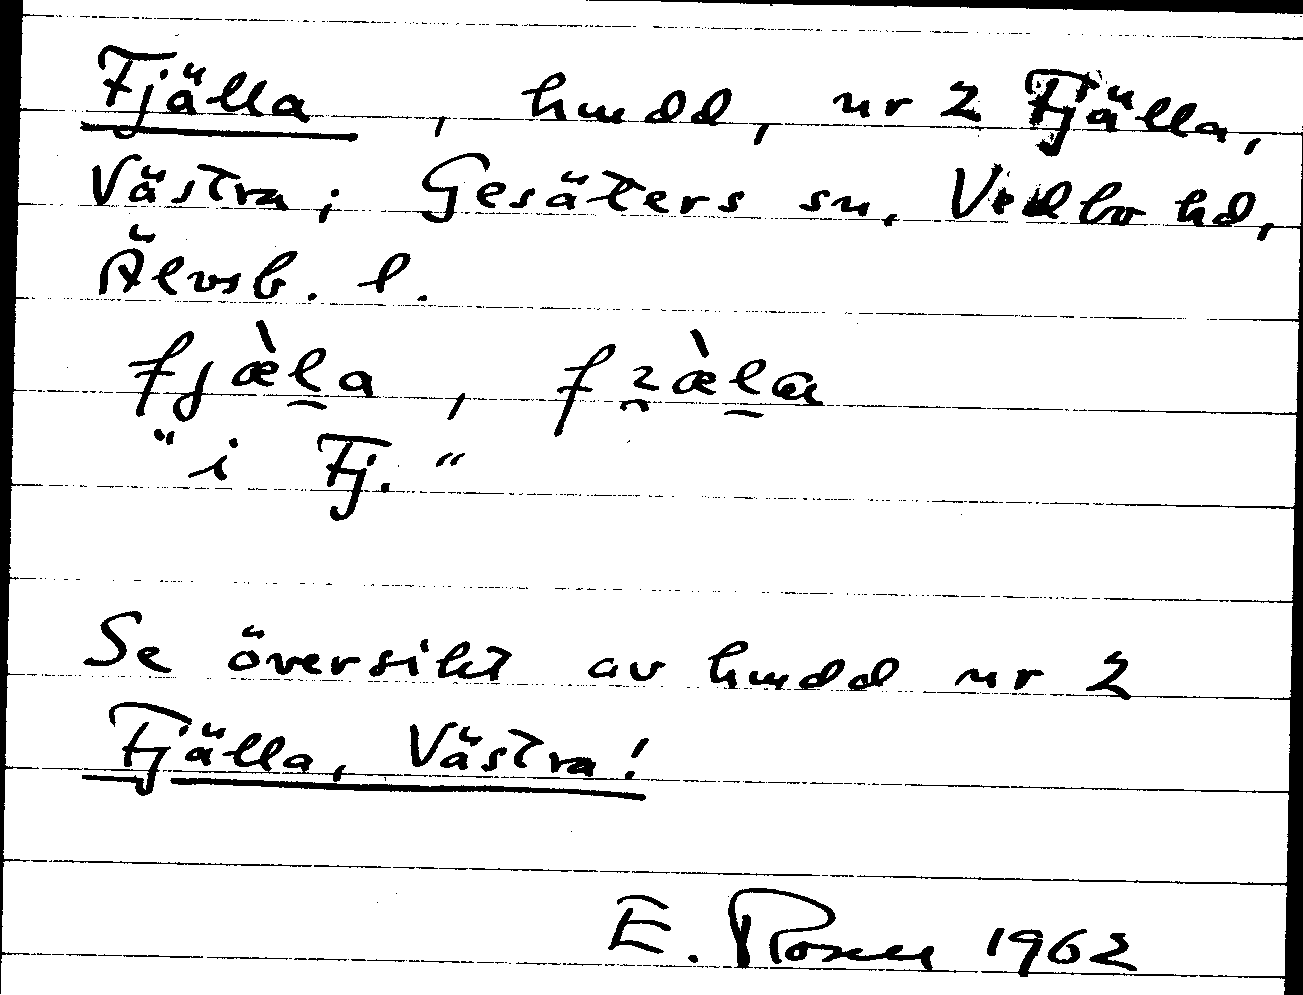 Fjälla, hmdd, nr 2 Fjälla,
Västra; Gesäters sn, Vedbo hd,
Älvsb. l.
fjæ̀l̠a, fʒæ̀l̠a
"i Fj."
Se översikt av hmdd nr 2
Fjälla, Västra!
E. Rosell 1962